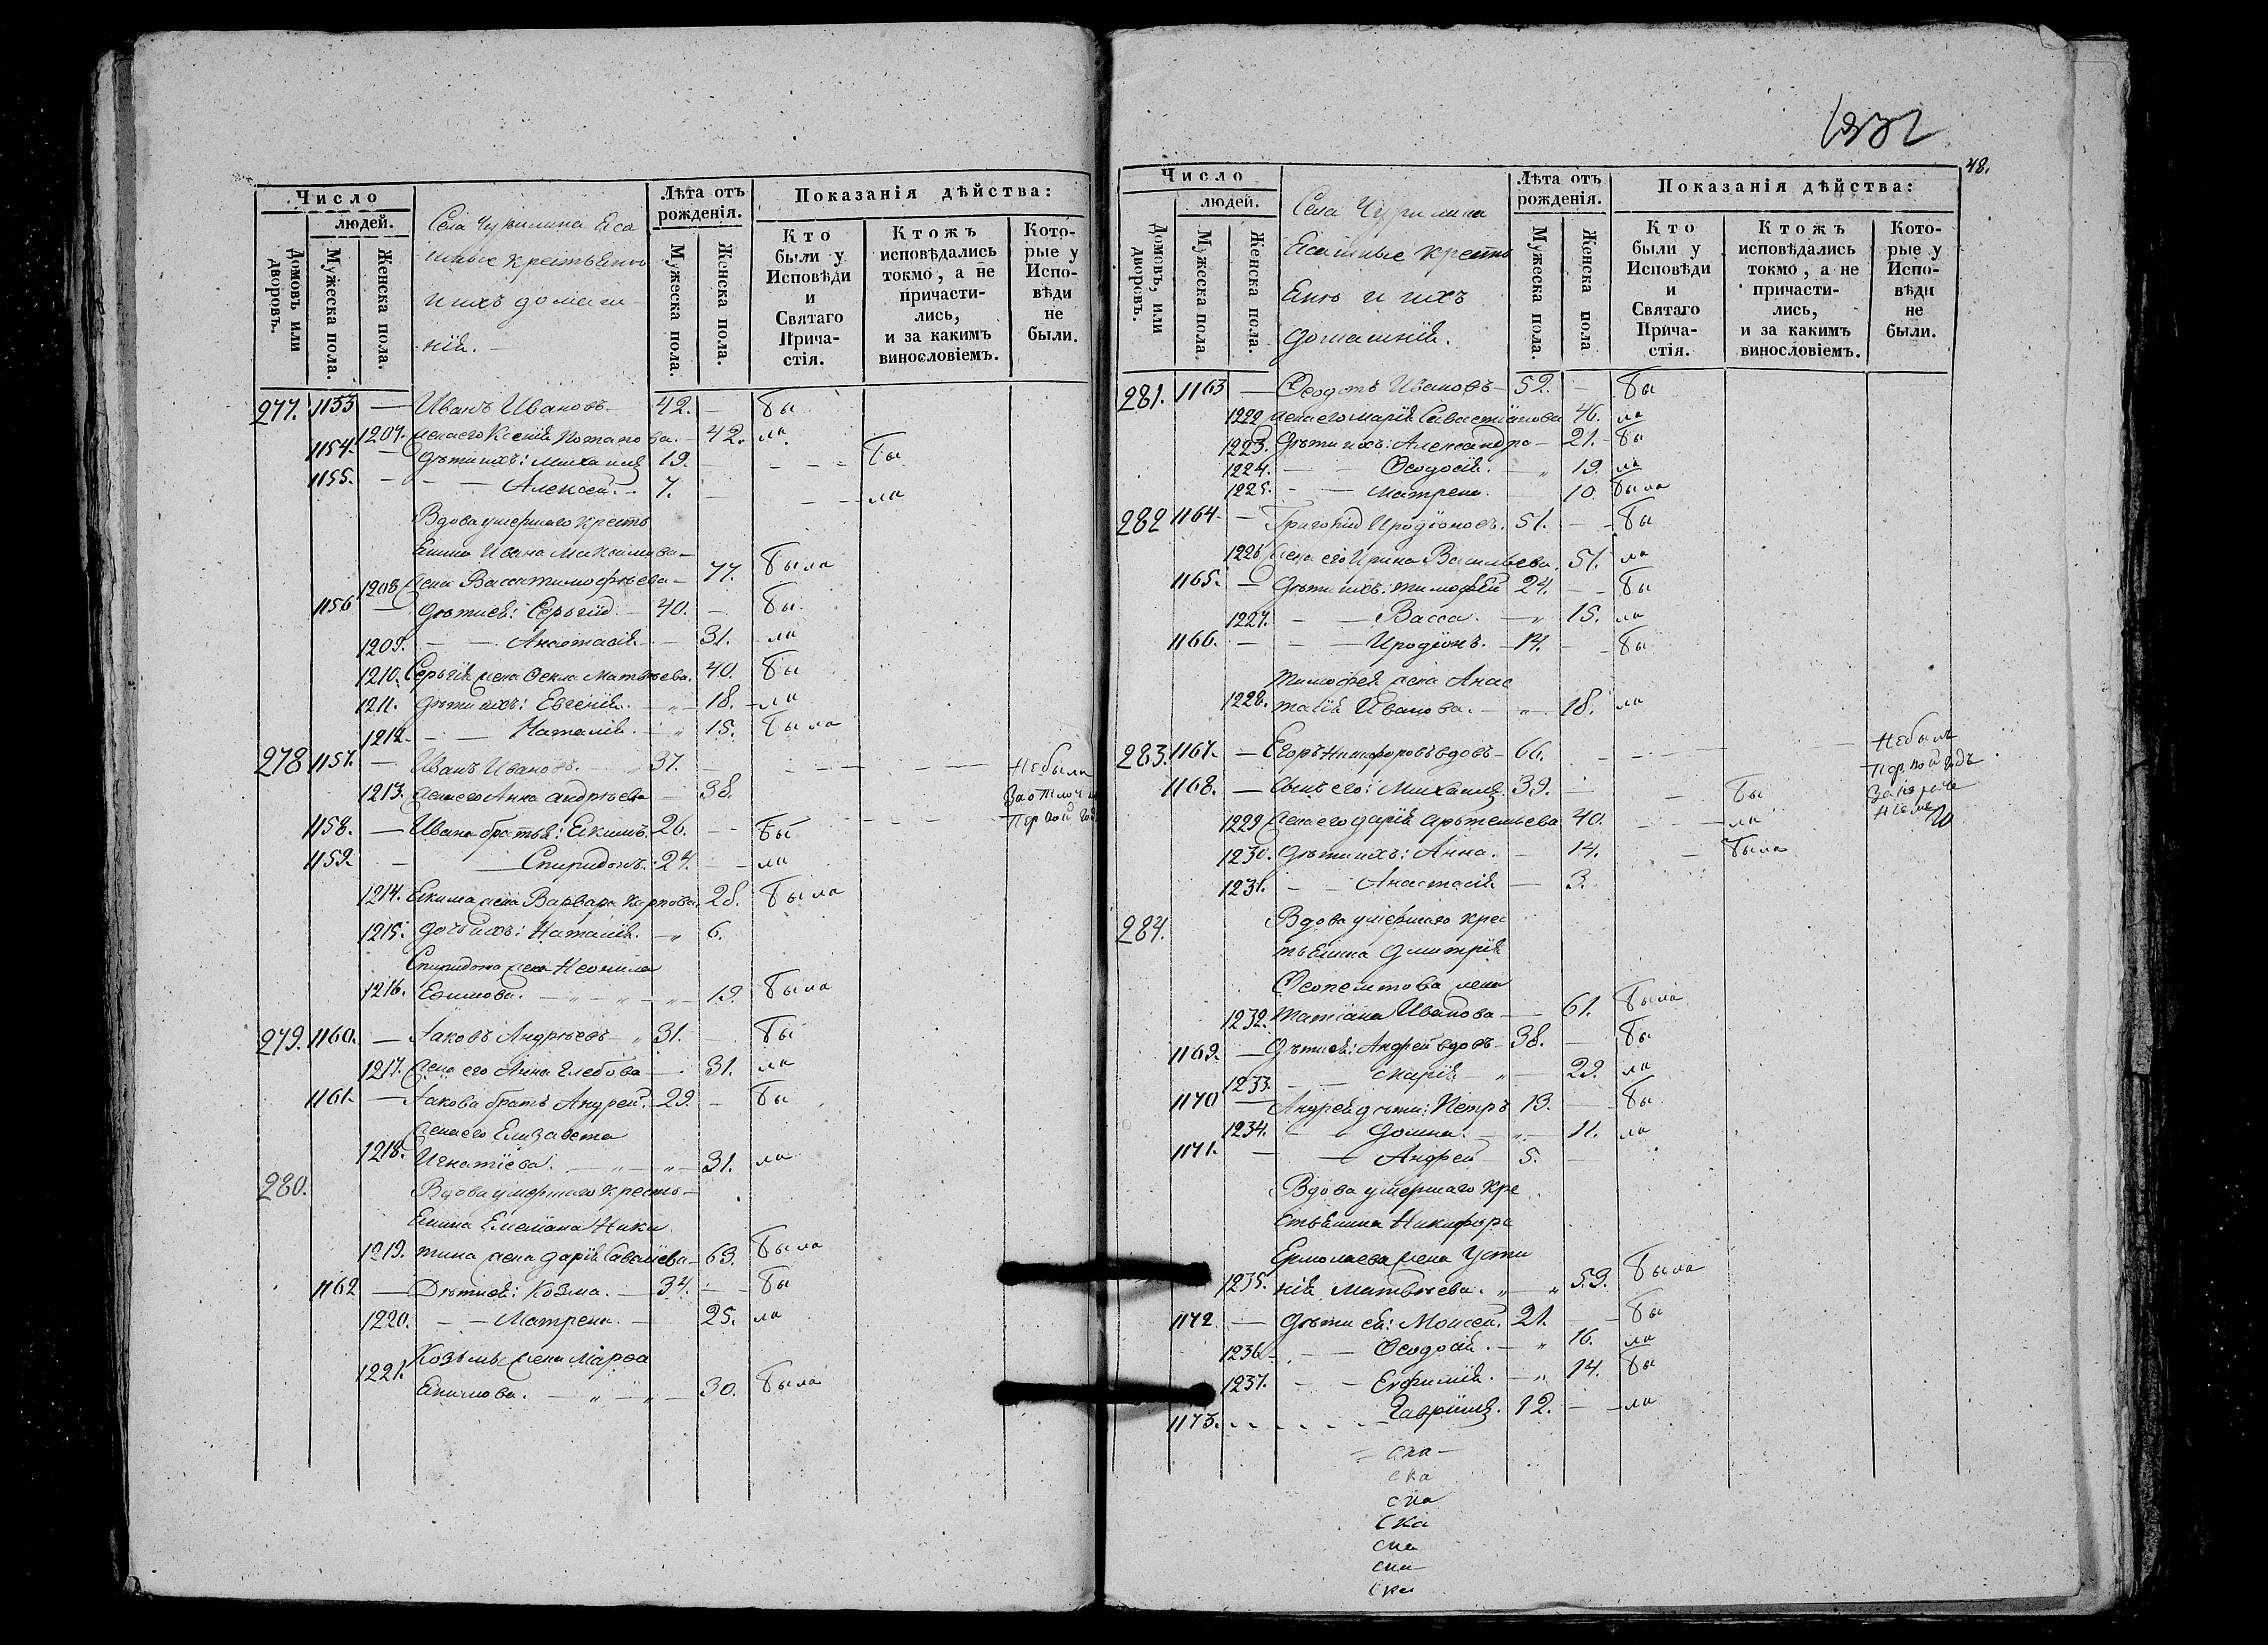 Число
людей.
Домовъ или дворовъ.
Мужеска пола.
Женска пола.
Села Чурилина Яса
шные крестьяне
и ихъ домаш
нія.
Лѣта отъ рожденія.
Мужеска пола.
Женска пола.
Показанія дѣйства:
Кто были у Исповѣди и Святаго Прича-стія.
Ктожъ исповѣдались токмо, а не причасти-лись, и за какимъ винословіемъ.
Кото-рые у Испо-вѣди не были.
277. 1153 — Иванъ Ивановъ — 42. — бы
1207. жена его Ксенія Потапова. — 42. ла
1154. — Дѣти ихъ: Михаилъ 19. — бы
1155. — Алексей. 7. — ла
Вдова умершаго кресть
янина Ивана Максимова
1208. жена Васса Тимофѣева — 77. была
1156 — Дѣти ея: Сергій — 40. — бы
1209. — Анастасія — 31. ла
1210. Сергія жена Фекла Матвѣева. 40. бы
1211. Дѣти ихъ: Евгенія. 18. ла
1212. — Наталія. 15. была
278 1157. — Иванъ Ивановъ. 37. — не былъ
1213. жена его Анна Андрѣева — 38. за отлуч
1158. — Ивана братья: Якимъ. 26. — бы первой год
1159. — Спиридонъ. 24. — ла
1214. Якима жена Варвара Карпова. 28. была
1215. Дочь ихъ: Наталія. 6.
Спиридона жена Неонила
1216. Ефимова. 19. была
279. 1160. — Яковъ Андрѣевъ 31. — бы
1217. жена его Анна Глебова — 31. ла
1161. — Якова братъ Андрей. 29. — бы
жена его Елизавета
1218. Игнатіева. 31. ла
280. Вдова умершаго кресть
янина Емеліана Ники
1219. тина жена Дарія Савеліева — 63. была
1162 — Дѣти ея: Козма. — 34. — бы
1220. — Матрена. — 25. ла
Козьмы жена Марѳа
1221. Якимова. 30. была
48.
Число
людей.
Домовъ, или дворовъ.
Мужеска пола.
Женска пола.
Села Чурилина
Ясашные кресть
яне и ихъ
домашнія.
Лѣта отъ рожденія.
Мужеска пола.
Женска пола
Показанія дѣйства:
Кто были у Исповѣди и Святаго Прича-стія.
Ктожъ исповѣдались токмо, а не причасти-лись, и за какимъ винословіемъ.
Кото-рые у Испо-вѣди не были.
281. 1163 — Ѳеодотъ Ивановъ — 52. — бы
1222 жена его Марія Савастіанова 46. ла
1223. Дѣти ихъ: Александра — 21. бы
1224. — Ѳеодосія. 19. ла
1225. — Матрена. 10. была
282 1164. — Григорій Иродіоновъ. 51. — бы
1226 жена его Ирина Васильева. 51. ла
1165. — Дѣти ихъ: Тимофей 24. — бы
1227. — Васса. 15. ла
1166. — Иродіонъ. 14. — бы
Тимофея жена Анас
1228. тасія Иванова. 18. ла
283. 1167. — Егоръ Никифоровъ вдовъ — 66. — не былъ
первой годъ
1168. — Сынъ его: Михаилъ. 39. — бы
1229 жена его Дарія Артемьева 40. — ла
1230. Дѣти ихъ: Анна. — 14. — была
1231. — Анастасія — 3.
284. Вдова умершаго крес
тьянина Дмитрія
Ѳеопемтова жена
1232. Татіана Иванова — 61. была
1169. — Дѣти ея: Андрей вдовъ — 38. — бы
1233. — Марія — 29. ла
1170 — Андрея дѣти: Петръ 13. — бы
1234. — Домна. 11. ла
1171. — Андрей 5. —
Вдова умершаго кре
стьянина Никифора
Ермолаева жена Усти
1235. нія Матвѣева. 59. была
1172. — Дѣти ея: Моисей. 21. — бы
1236. — Ѳеодосія. 16. ла
1237. — Евфимія. 14. бы
1173. — Гавріилъ. 12. — ла
ска
ска
ска
ска
ска
ска
ска